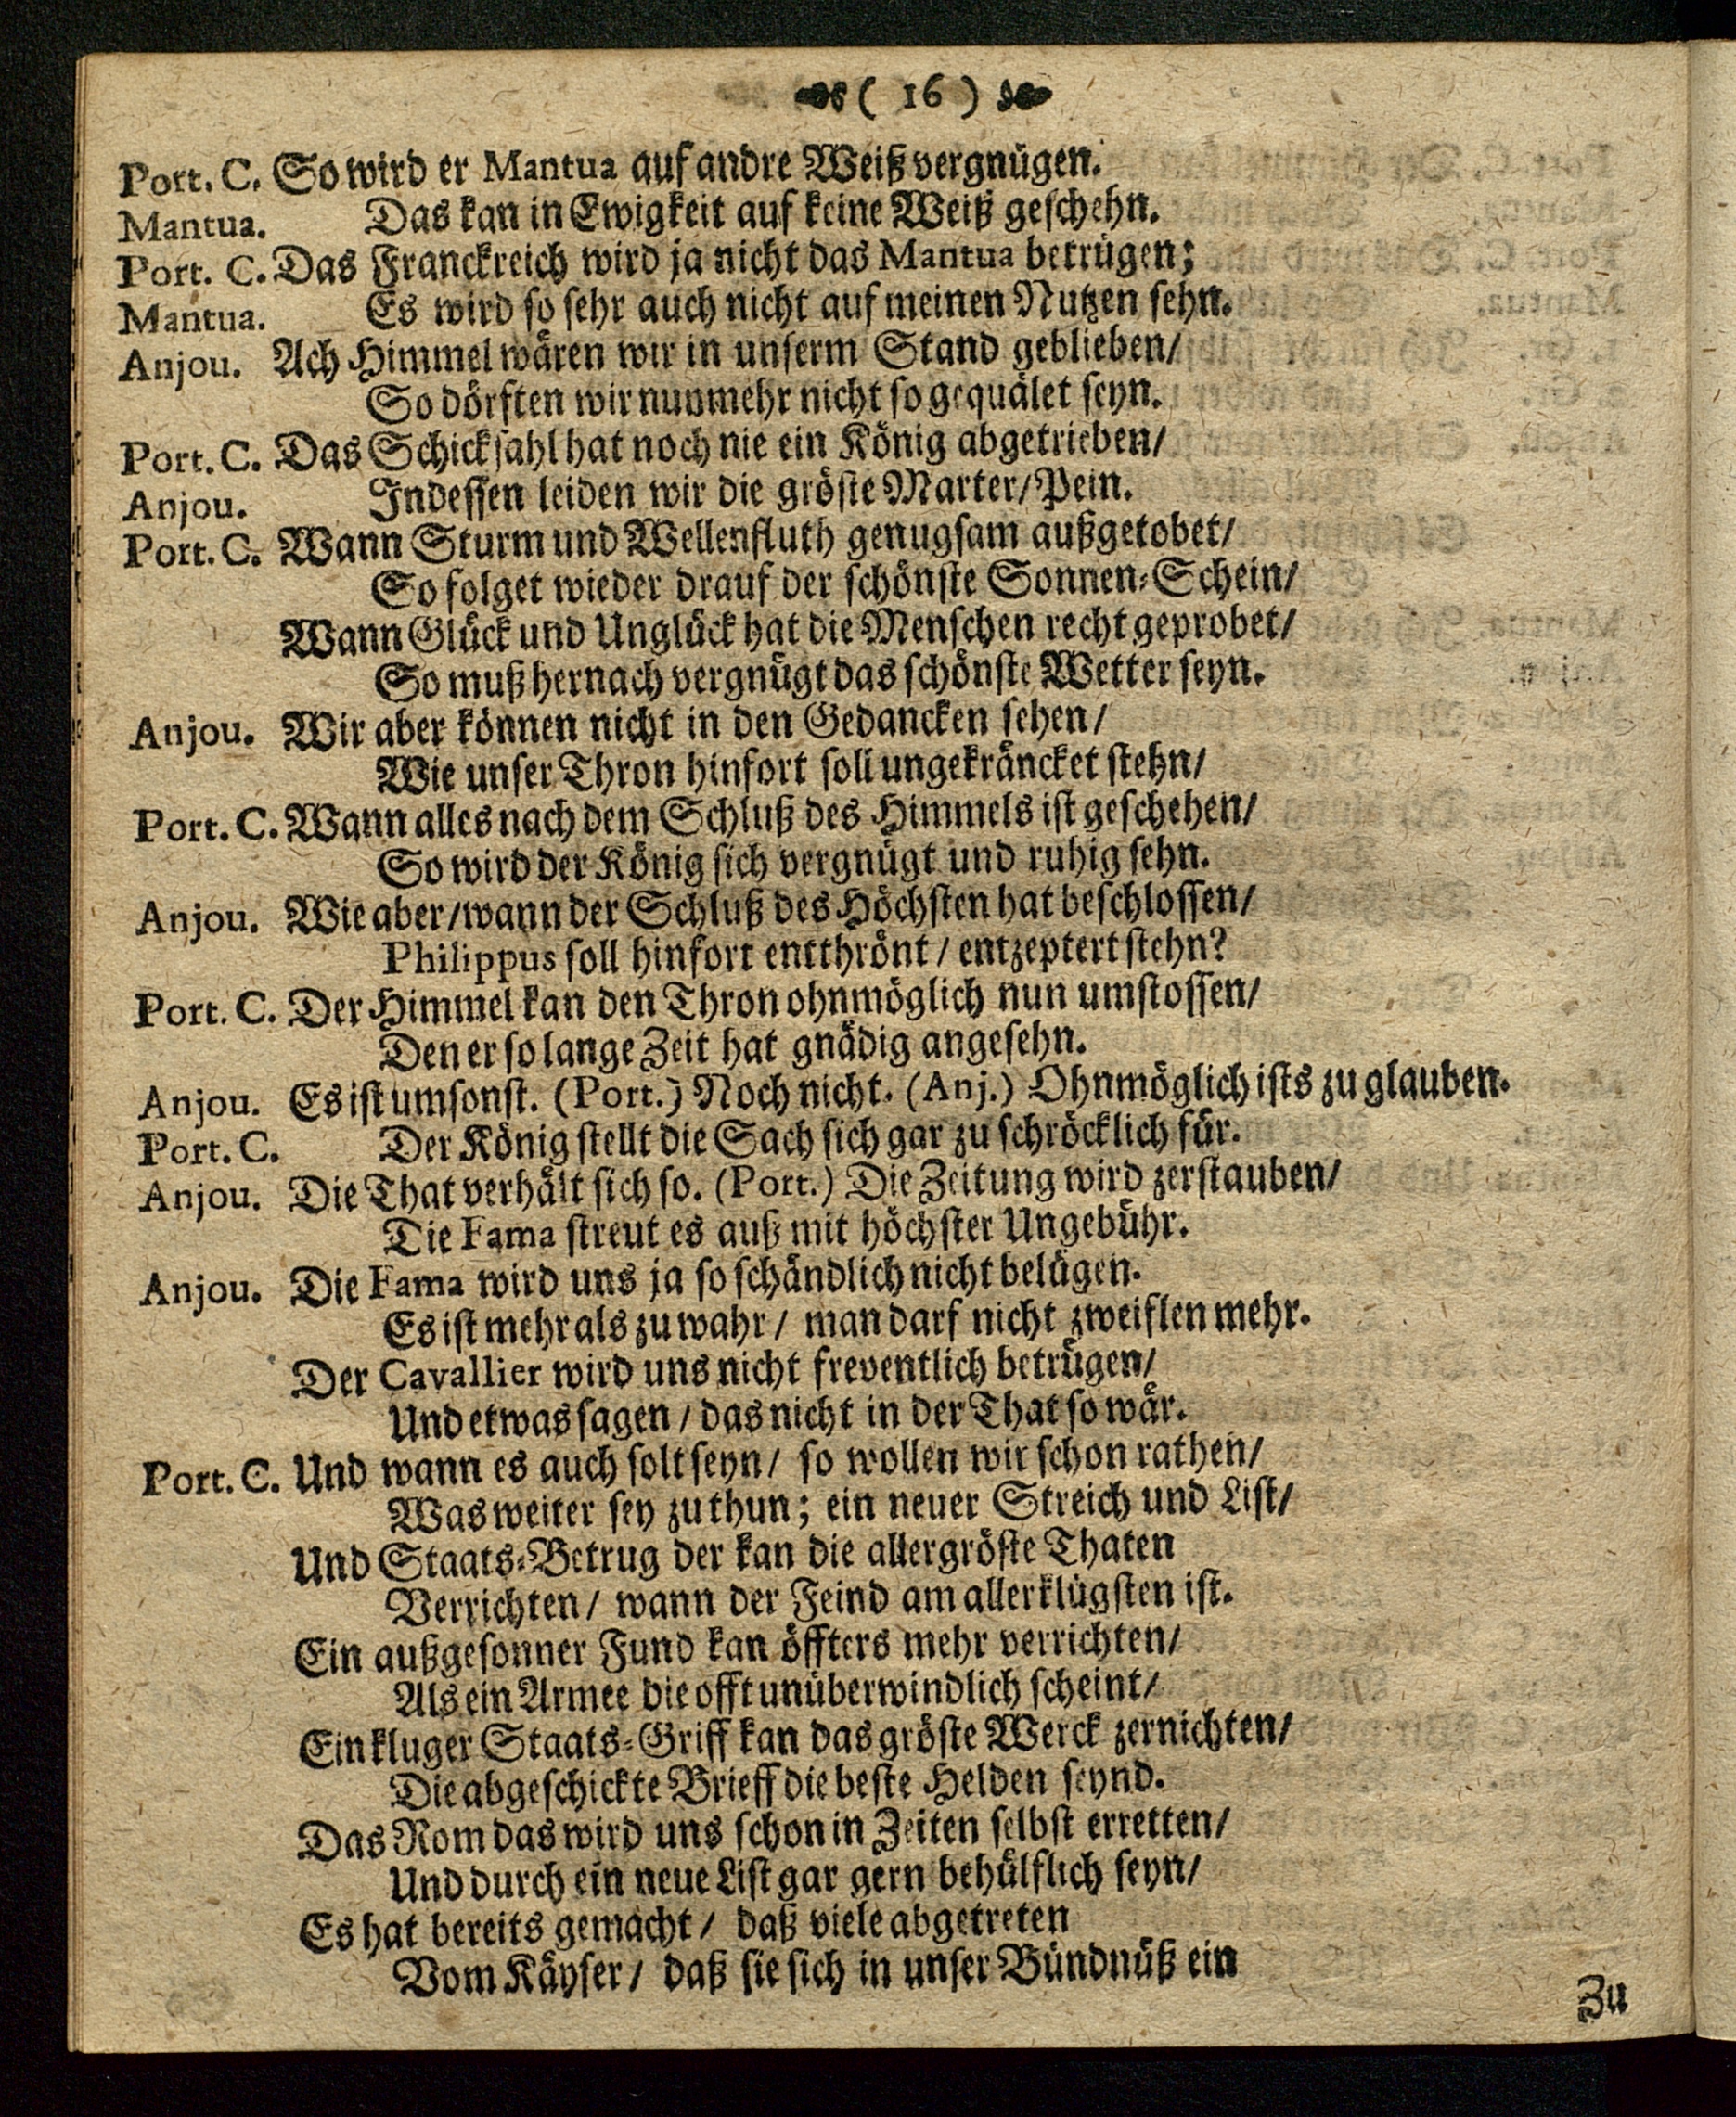 ( 16 )
Port. C. So wird er Mantua auf andre Weiß vergnügen.
Mantua. Das kan in Ewigkeit auf keine Weiß geschehn.
Port. C. Das Franckreich wird ja nicht das Mantua betrügen;
Mantua. Es wird so sehr auch nicht auf meinen Nutzen sehn.
Anjou. Ach Himmel wären wir in unserm Stand geblieben/
So dörften wir nunmehr nicht so gequälet seyn.
Port. C. Das Schicksahl hat noch nie ein König abgetrieben/
Anjou. Indessen leiden wir die gröste Marter/ Pein.
Port. C. Wann Sturm und Wellenfluth genugsam außgetobet/
So folget wieder drauf der schönste Sonnen-Schein/
Wann Glück und Unglück hat die Menschen recht geprobet/
So muß hernach vergnügt das schönste Wetter seyn.
Anjou. Wir aber können nicht in den Gedancken sehen/
Wie unser Thron hinfort soll ungekräncket stehn/
Port. C. Wann alles nach dem Schluß des Himmels ist geschehen/
So wird der König sich vergnügt und ruhig sehn.
Anjou. Wie aber/ wann der Schluß des Höchsten hat beschlossen/
Philippus soll hinfort entthrönt/ entzeptert stehn?
Port. C. Der Himmel kan den Thron ohnmöglich nun umstossen/
Den er so lange Zeit hat gnädig angesehn.
Anjou. Es ist umsonst. (Port.) Noch nicht. (Anj.) Ohnmöglich ists zu glauben.
Port. C. Der König stellt die Sach sich gar zu schröcklich für.
Anjou. Die That verhält sich so. (Port.) Die Zeitung wird zerstauben/
Die Fama streut es auß mit höchster Ungebühr.
Anjou. Die Fama wird uns ja so schändlich nicht belügen.
Es ist mehr als zu wahr/ man darf nicht zweiflen mehr.
Der Cavallier wird uns nicht freventlich betrügen/
Und etwas sagen/ das nicht in der That so wär.
Port. C. Und wann es auch solt seyn/ so wollen wir schon rathen/
Was weiter sey zu thun; ein neuer Streich und List/
Und Staats-Betrug der kan die allergröste Thaten
Verrichten/ wann der Feind am allerklügsten ist.
Ein außgesonner Fund kan öffters mehr verrichten/
Als ein Armee die offt unüberwindlich scheint/
Ein kluger Staats-Griff kan das gröste Werck zernichten/
Die abgeschickte Brieff die beste Helden seynd.
Das Rom das wird uns schon in Zeiten selbst erretten/
Und durch ein neue List gar gern behülflich seyn/
Es hat bereits gemacht/ daß viele abgetreten
Vom Käyser/ daß sie sich in unser Bündnüß ein
Zu